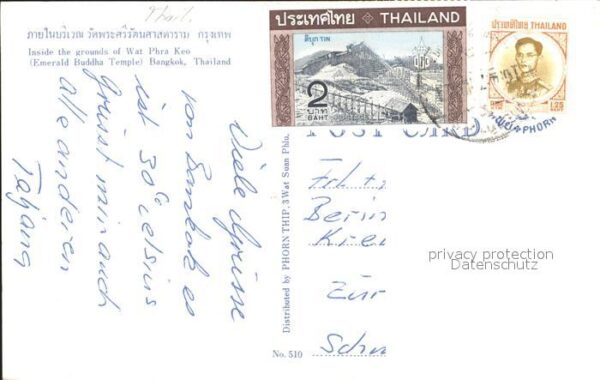 Thail.
ภายในบริเวณ วัดพระศรีรัตนศาสดาราม กรุงเทพ
Inside the grounds of Wat Phra Keo
(Emerald Buddha Temple) Bangkok, Thailand
ประเทศไทย THAILAND
ดีบุก TIN
2
บาท
BAHT
ประเทศไทย THAILAND
บาท 1.25
PHORN
POST CARD
Viele Grüsse
von Bankok es
ist 30° Celsius
grüsst mir auch
alle anderen
Distributed by PHORN THIP, 3 Wat Suan Phlu,
No. 510
privacy protection
Datenschutz